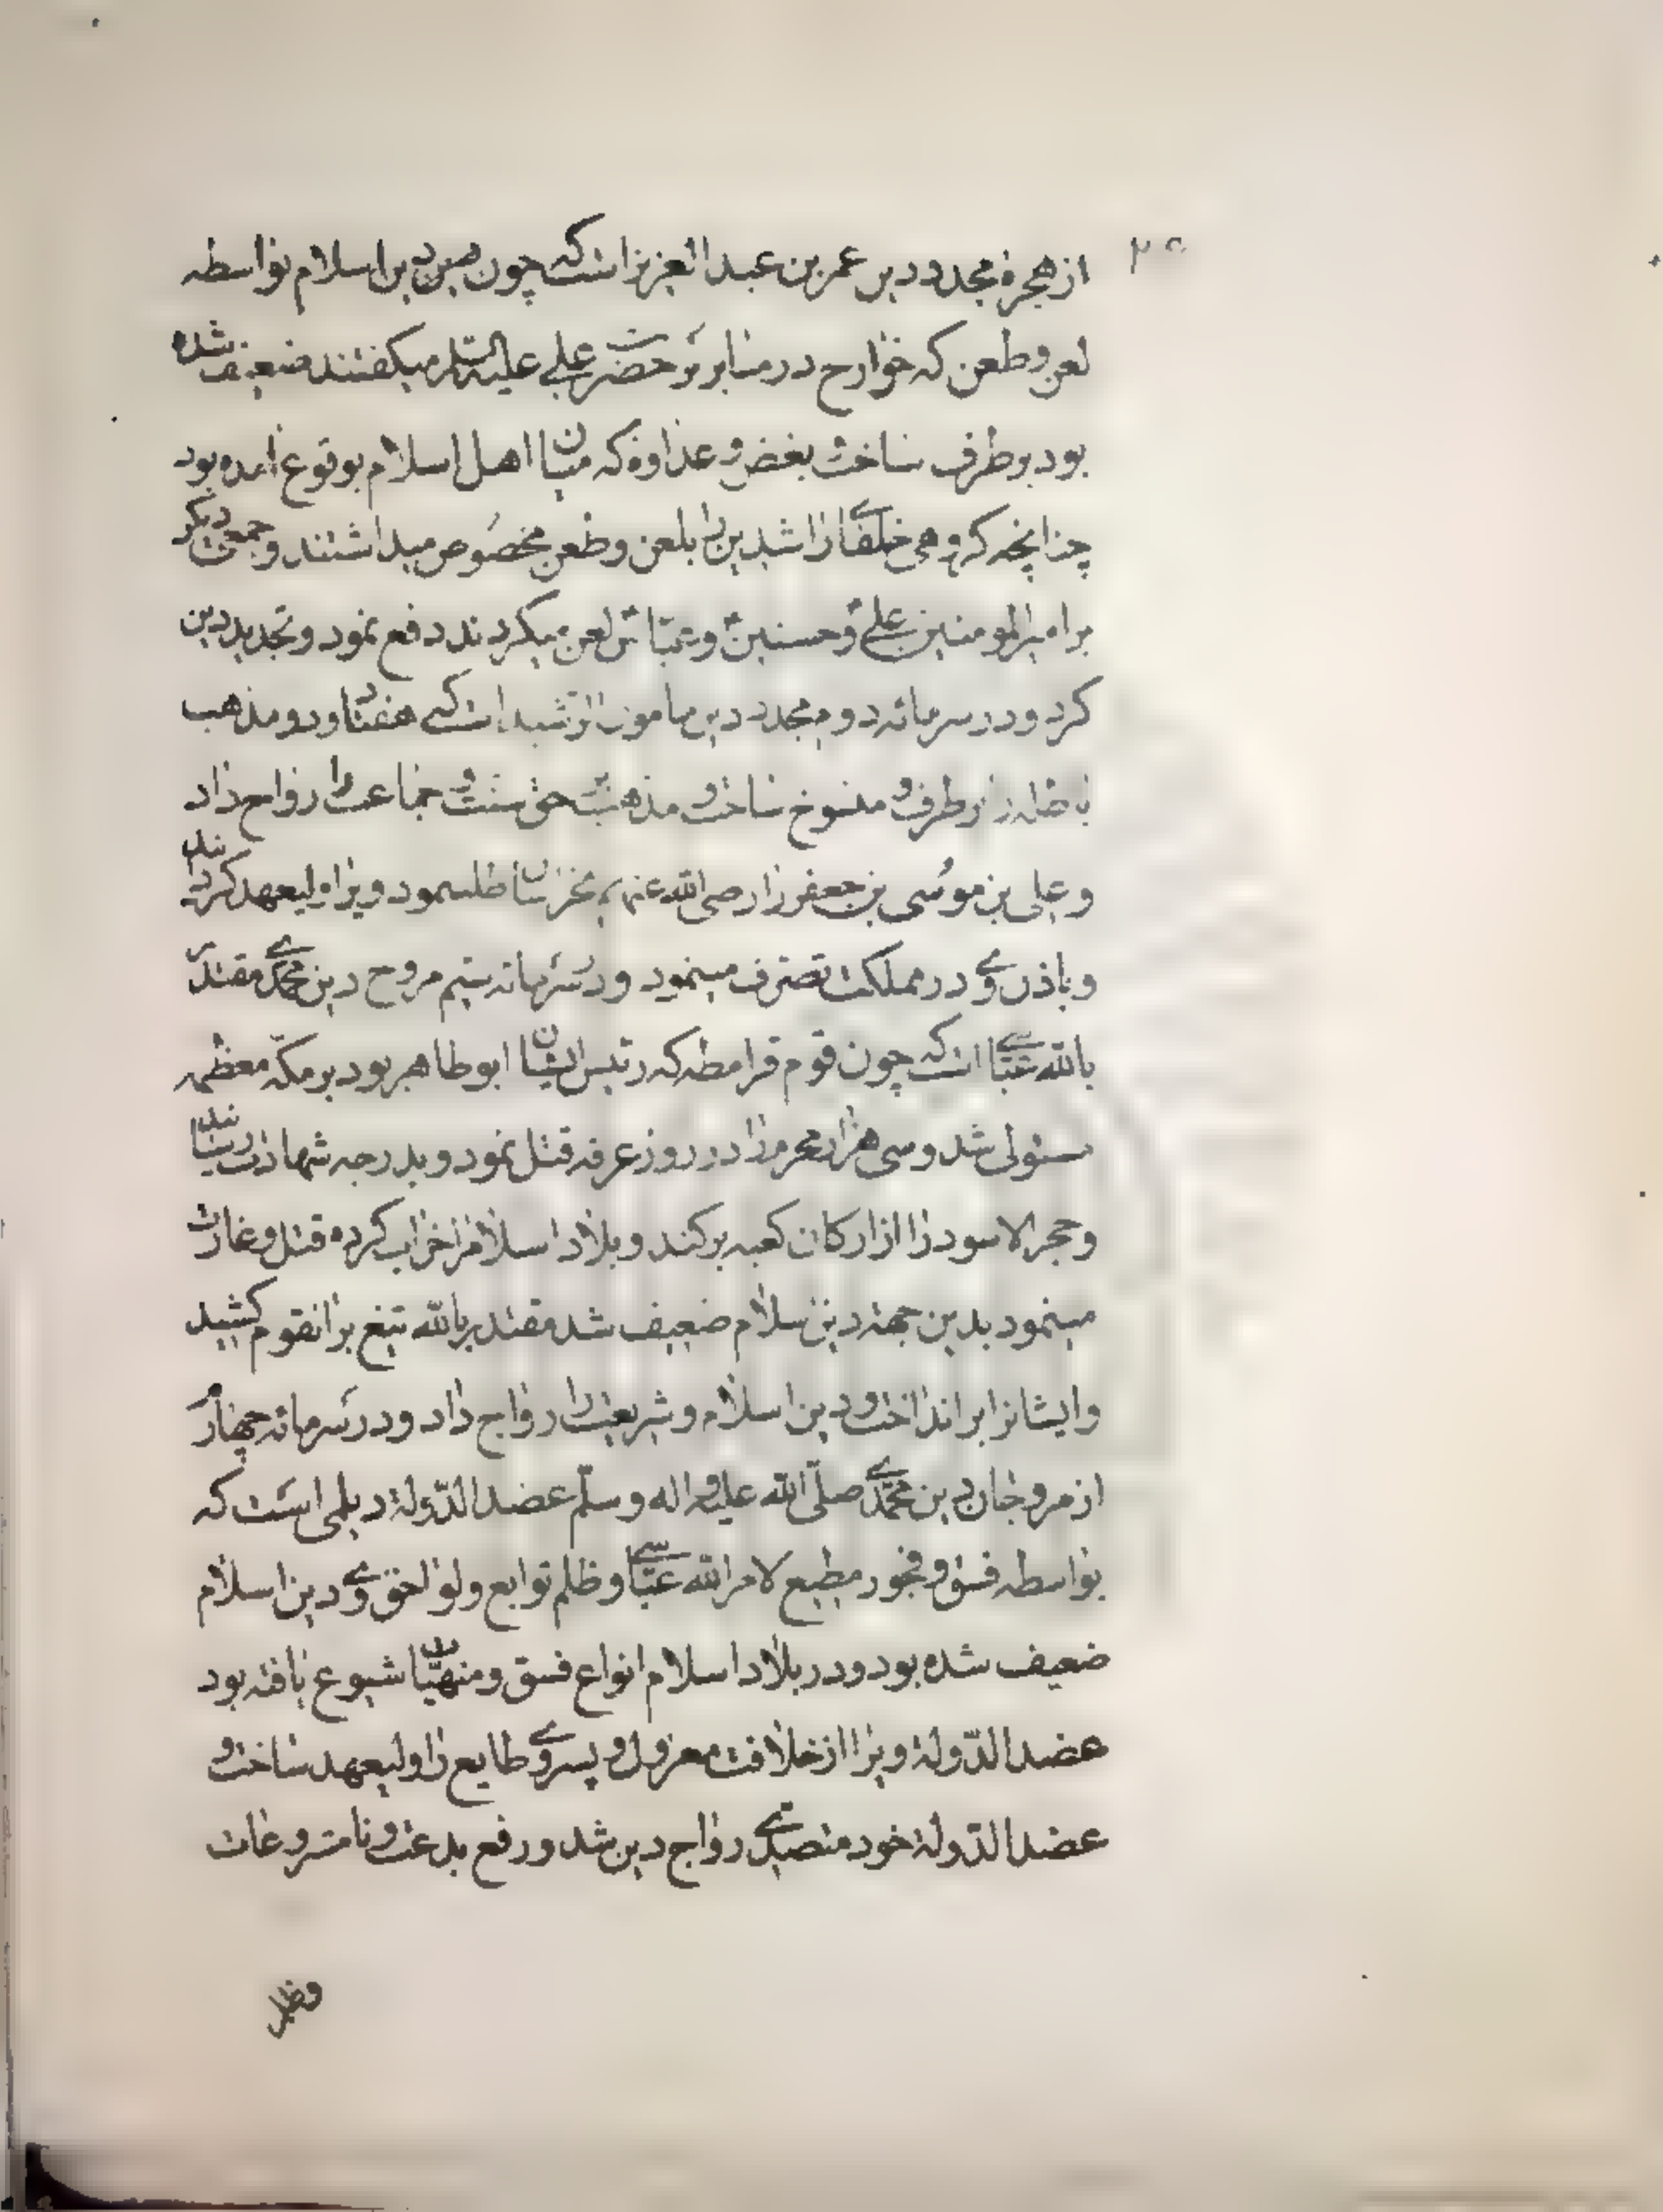 از هجرة مجدد دین عمر بن عبد العزیز است که چون دین اسلام بواسطه
لعن و طعن که خوارج در منابر بر حضرت علی علیه السلم میکفتند ضعیف شده
بود برطرف ساخت و بغض و عداوة که میان اهل اسلام بوقوع آمده بود
چنانچه کروهی خلفای راشدین را بلعن و طعن مخصوص میداشتند و جمعی دیکر
بر امیر المومنین علی و حسنین و عباس لعن میکردند دفع نمود و تجدید دین
کرد و در سر مائه دوم مجدد دین مامون الرشید است که هفتاد و دو مذهب
باطله را برطرف و منسوخ ساخت و مذهب حق سنت و جماعت را رواج داد
و علی بن موسی بن جعفر را رضی الله عنهم بخراسان طلب نمود ویرا ولیعهد کردانید
و باذن وی در مملکت تصرف مینمود و در سر مائه سیم مروج دین محمدی مقتدر
بالله عباسی است که چون قوم قرامطه که رئیس ایشان ابوطاهر بود بر مکّه معظمه
مستولی شد و سی هزار محرم را در روز عرفه قتل نمود و بدرجه شهادت رسانید
و حجر الاسود را از ارکان کعبه برکند و بلاد اسلام را خراب کرده قتل و غارت
مینمود بدین جهة دین اسلام ضعیف شد مقتدر بالله تیغ بر انقوم کشید
و ایشانرا برانداخت و دین اسلام و شریعت را رواج داد و در سر مائه چهارم
از مروجان دین محمّدی صلّی الله علیه و اله و سلّم عضد الدّولة دیلمی است که
بواسطه فسق و فجور مطیع لامر الله عبّاسی و ظلم توابع و لواحق وی دین اسلام
ضعیف شده بود و در بلاد اسلام انواع فسق و منهیّات شیوع یافته بود
عضد الدّولة ویرا از خلافت معزول و پسر وی طایع را ولیعهد ساخت و
عضد الدّولة خود متصدی رواج دین شد و رفع بدعت و نامشروعات